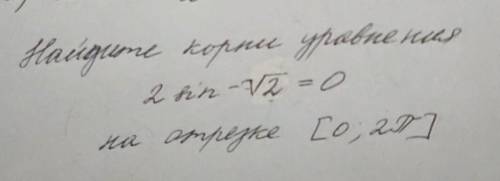 Найдите корни уравнения
2 sin - √2 = 0
на отрезке [0; 2π]